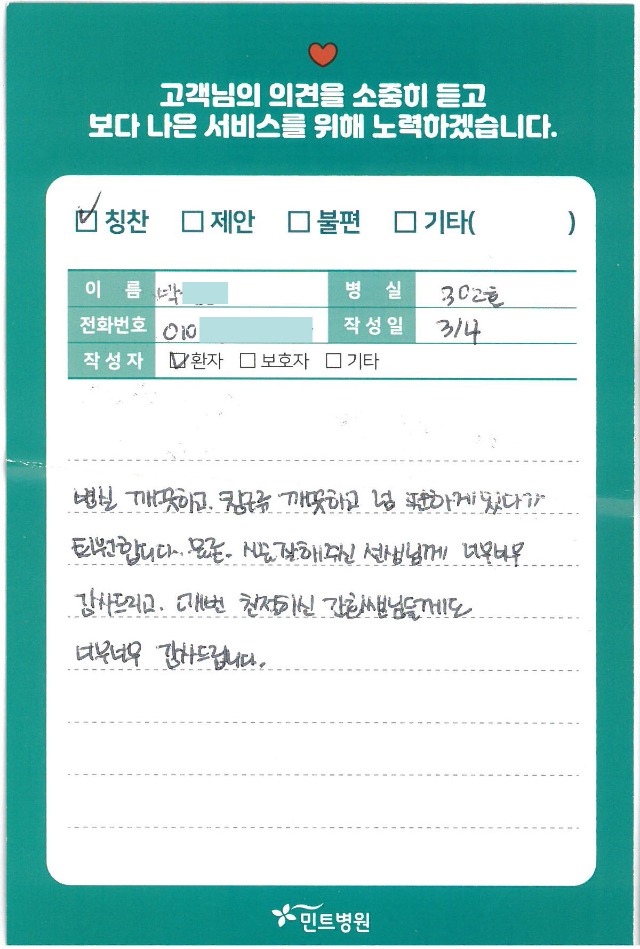 고객님의 의견을 소중히 듣고
보다 나은 서비스를 위해 노력하겠습니다.
☑ 칭찬 ☐ 제안 ☐ 불편 ☐ 기타( )
이 름 박 병 실 302호
전화번호 010 작성일 3/4
작성자 ☑환자 ☐보호자 ☐기타
병실 깨끗하고. 침구류 깨끗하고 넘 편하게 있다가
퇴원합니다. 물론. 시술 잘해주신 선생님께 너무너무
감사드리고. 매번 친절하신 간호쌤님들께도
너무너무 감사드립니다.
민트병원